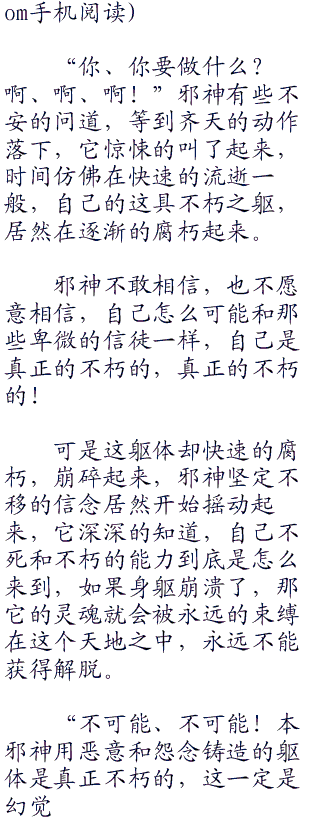 om手机阅读)
“你、你要做什么?
啊、啊、啊!”邪神有些不
安的问道，等到齐天的动作
落下，它惊悚的叫了起来，
时间仿佛在快速的流逝一
般，自己的这具不朽之躯，
居然在逐渐的腐朽起来。
邪神不敢相信，也不愿
意相信，自己怎么可能和那
些卑微的信徒一样，自己是
真正的不朽的，真正的不朽
的!
可是这躯体却快速的腐
朽，崩碎起来，邪神坚定不
移的信念居然开始摇动起
来，它深深的知道，自己不
死和不朽的能力到底是怎么
来到，如果身躯崩溃了，那
它的灵魂就会被永远的束缚
在这个天地之中，永远不能
获得解脱。
“不可能、不可能!本
邪神用恶意和怨念铸造的躯
体是真正不朽的，这一定是
幻觉